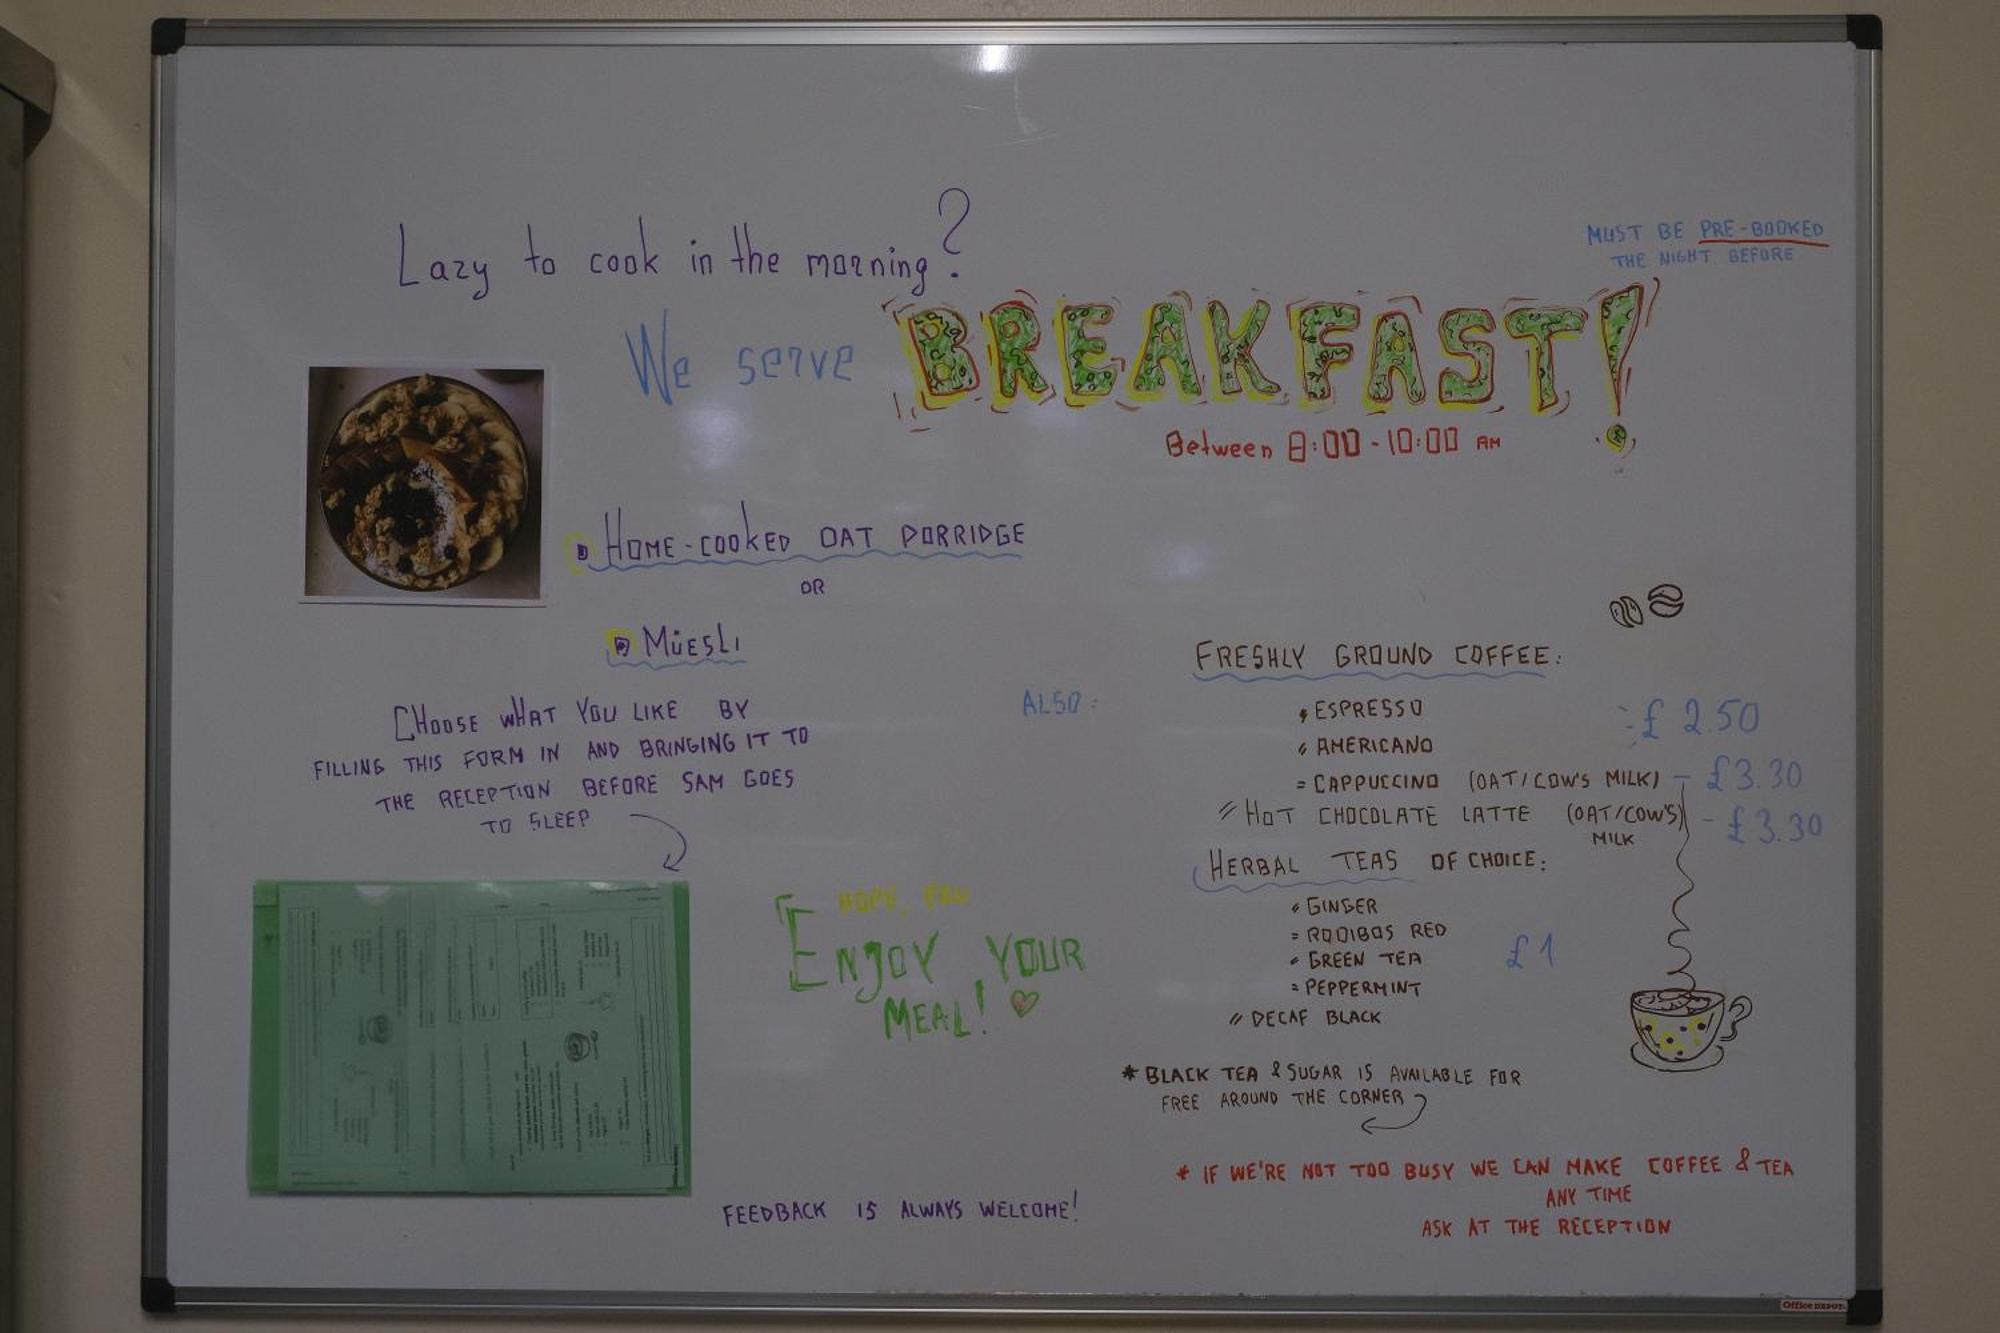 Lazy to cook in the morning?
MUST BE PRE-BOOKED
THE NIGHT BEFORE
We serve BREAKFAST!
Between 8:00 - 10:00 AM
HOME-COOKED OAT PORRIDGE
OR
MÜESLI
CHOOSE WHAT YOU LIKE BY
FILLING THIS FORM IN AND BRINGING IT TO
THE RECEPTION BEFORE SAM GOES
TO SLEEP
HOPE, YOU
ENJOY YOUR
MEAL!
FEEDBACK IS ALWAYS WELCOME!
ALSO:
FRESHLY GROUND COFFEE:
ESPRESSO
AMERICANO
£ 2.50
= CAPPUCCINO (OAT/COW'S MILK) - £3.30
" HOT CHOCOLATE LATTE (OAT/COW'S) - £3.30
MILK
HERBAL TEAS OF CHOICE:
" GINGER
= ROOIBOS RED
" GREEN TEA £1
= PEPPERMINT
" DECAF BLACK
* BLACK TEA & SUGAR IS AVAILABLE FOR
FREE AROUND THE CORNER
* IF WE'RE NOT TOO BUSY WE CAN MAKE COFFEE & TEA
ANY TIME
ASK AT THE RECEPTION
Office DEPOT